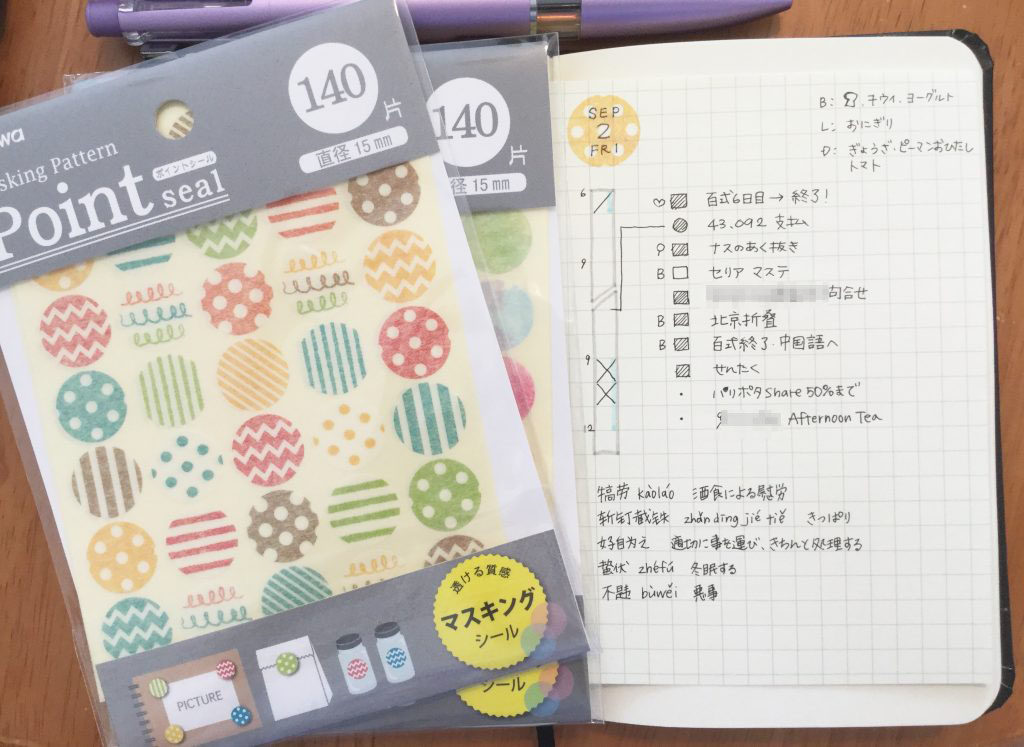 140
片
直径15mm
wa
sking Pattern
Point
ポイントシール
seal
140
片
径15mm
透ける質感
マスキング
シール
PICTURE
シール
SEP
2
FRI
B: キウイ・ヨーグルト
L: おにぎり
D: ぎょうざ・ピーマンおひたし
トマト
6
9
9
12
百式6日目→終了!
43,092 支払
ナスのあく抜き
B セリア マステ
句合せ
B 北京折叠
B 百式終了・中国語へ
せんたく
・ハリポタShare 50%まで
・ Afternoon Tea
犒劳 kàoláo 酒食による慰労
斩钉截铁 zhǎn dīng jié tiě きっぱり
好自为之 適切に事を運び、きちんと処理する
蛰伏 zhéfú 冬眠する
不韪 bùwěi 悪事